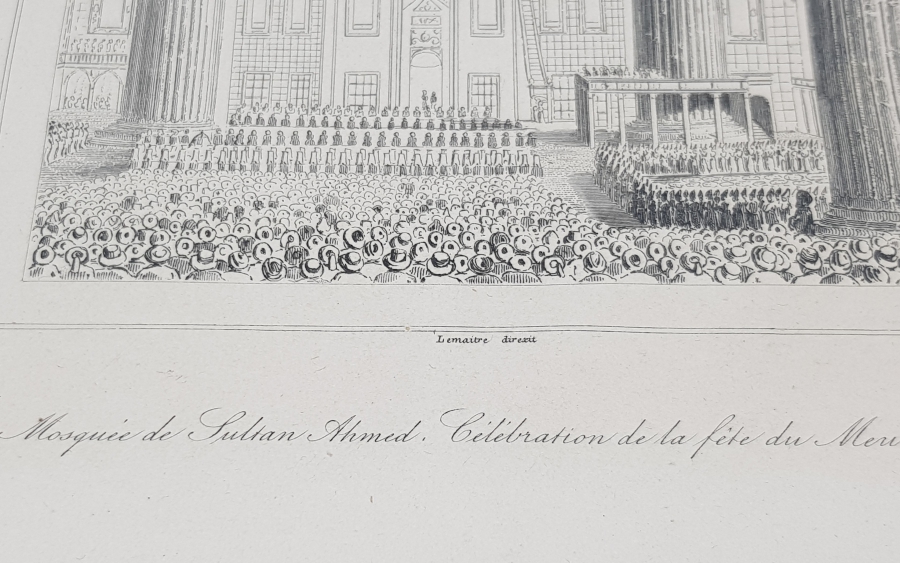 Lemaitre direxit
Mosquée de Sultan Ahmed. Célébration de la fête du